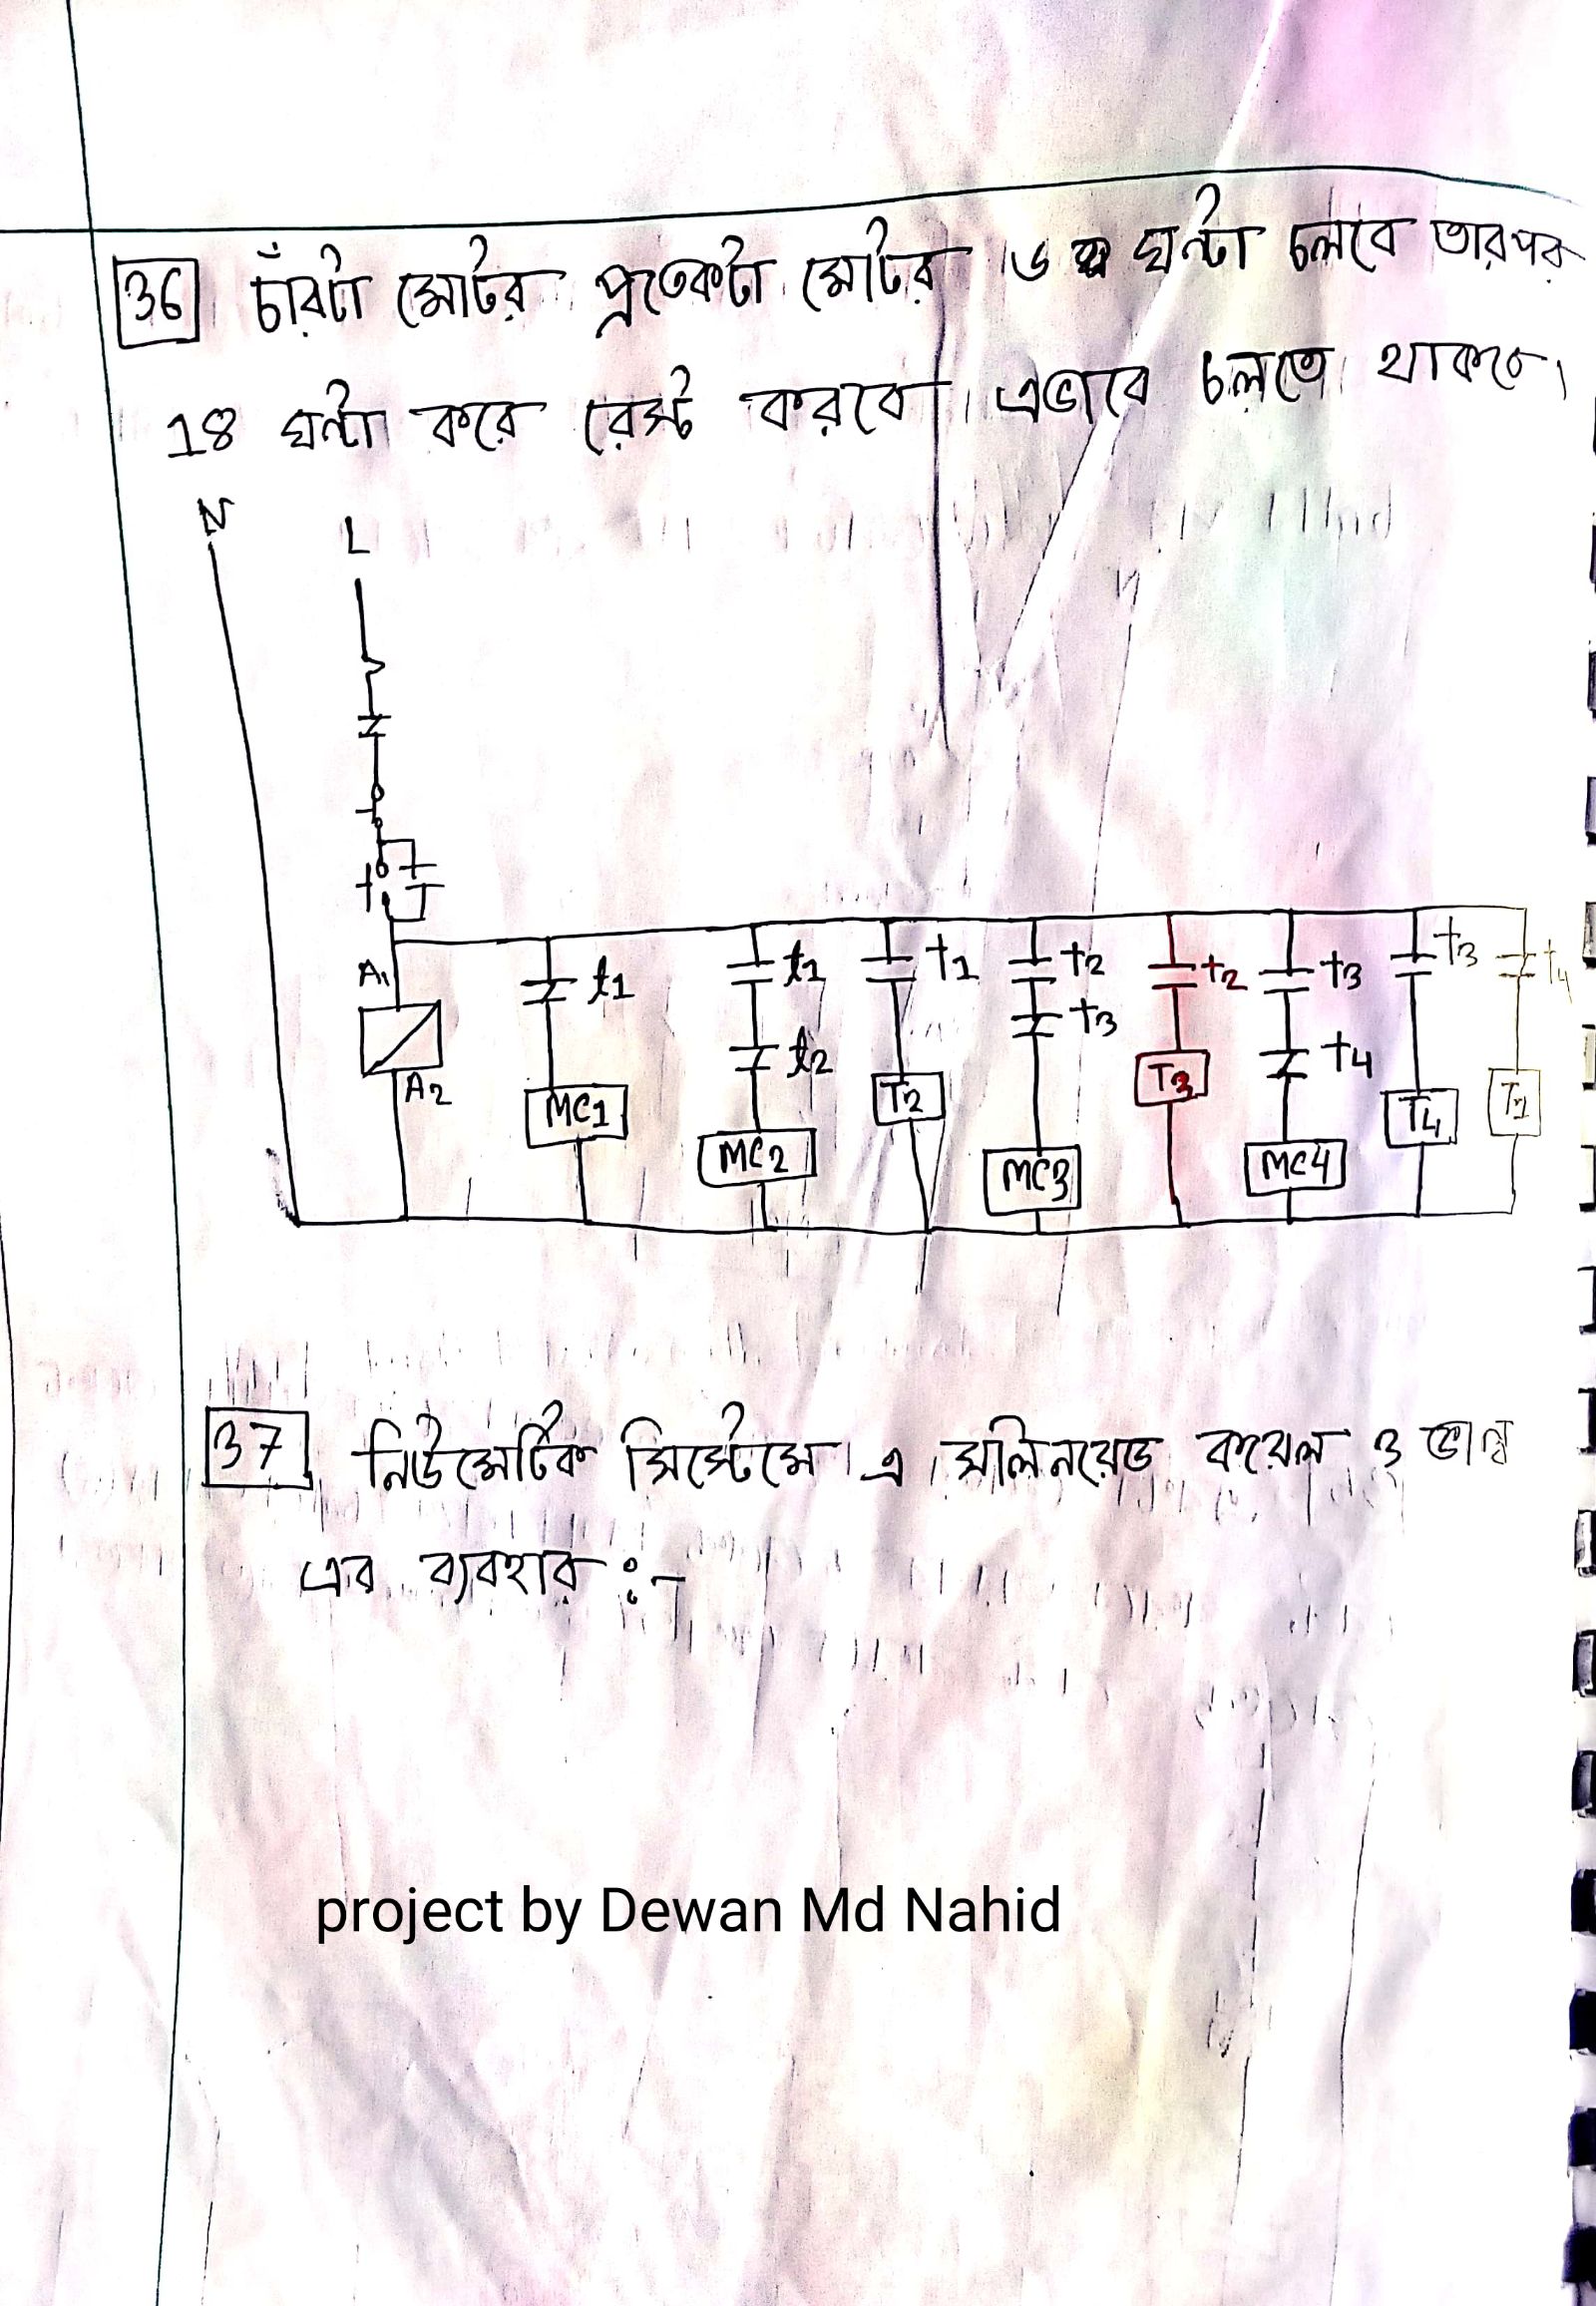 36 চাঁরটা মোটর প্রতেকটা মোটর ৬ ঘন্টা চলবে তারপর
18 ঘন্টা করে রেস্ট করবে এভাবে চলতে থাকবে।
N
L
A1
t1
t1
t1
t2
t2
t3
t3
t4
t2
t3
t4
A2
MC1
MC2
T2
MC3
T3
MC4
T4
T1
37 নিউমেটিক সিস্টেমে এ সলিনয়েড কয়েল ও ভাল্ব
এর ব্যবহার :-
project by Dewan Md Nahid